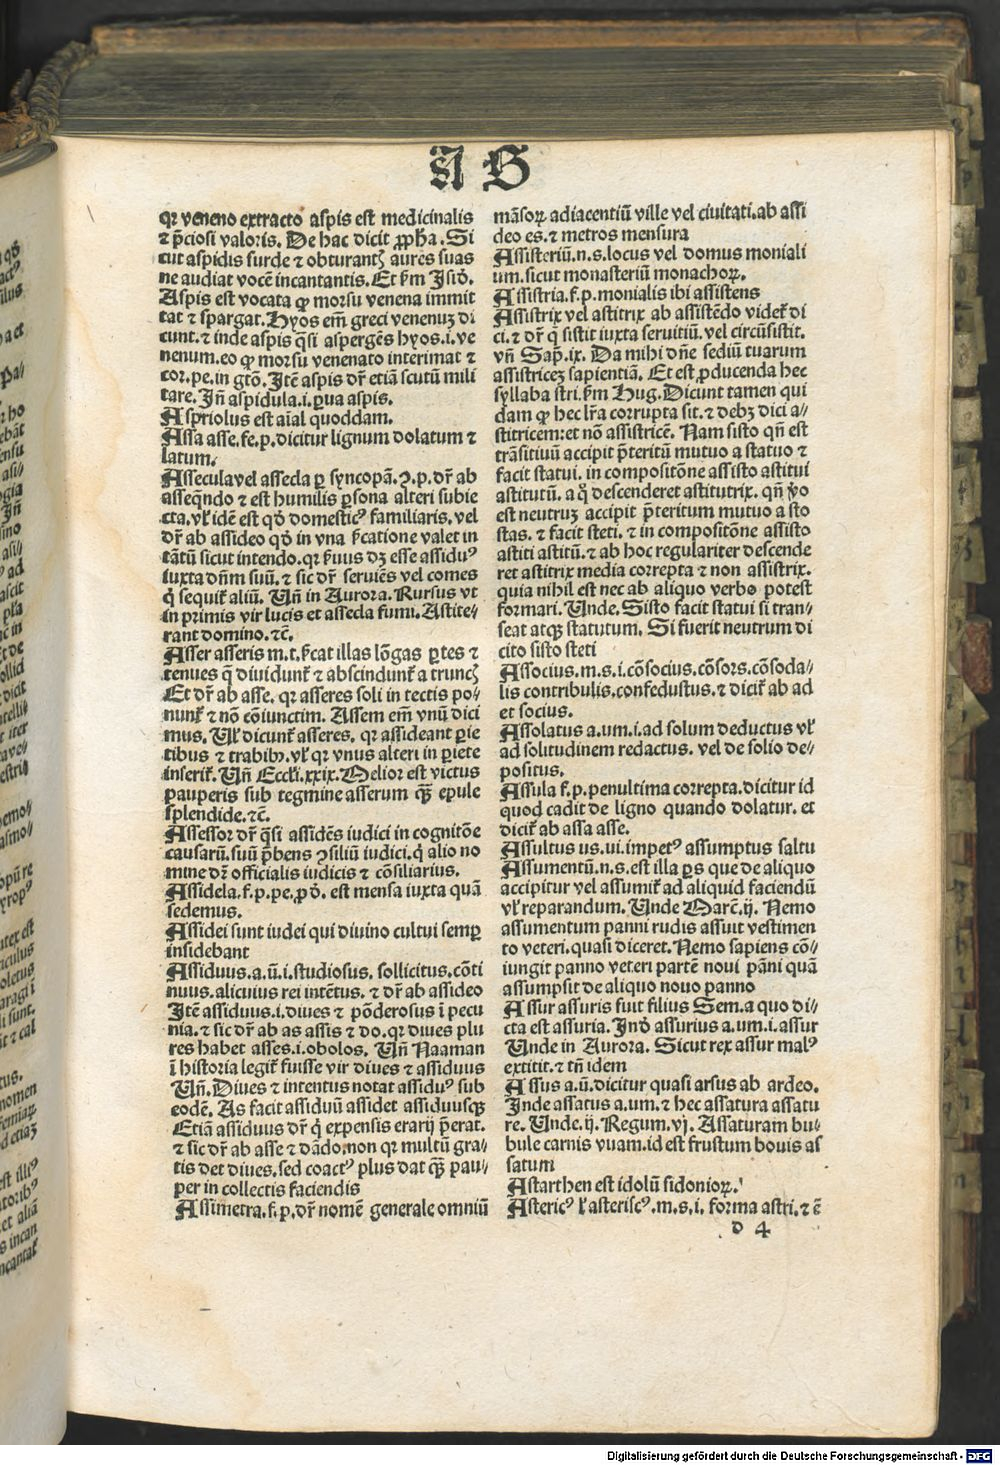 A S
qr veneno extracto aspis est medicinalis
⁊ p̄ciosi valoris. De hac dicit ꝓpħa. Si
cut aspidis surde ⁊ obturantꝭ aures suas
ne audiat vocē incantantis. Et ẜm Isid̄.
Aspis est vocata ꝙ morsu venena immit
tat ⁊ spargat. Hyos em̄ greci venenuꝫ di
cunt. ⁊ inde aspis q̄si aspergēs hyos.i.ve
nenum.eo ꝙ morsu venenato interimat ⁊
cor.pe.in gtō. Itē aspis dr̄ etiā scutū mili
tare. Jn̄ aspidula.i.ꝑua aspis.
Aspriolus est aīal quoddam.
Assa asse.fe.p.dicitur lignum dolatum ⁊
latum.
Assecula vel asseda ꝑ syncopā.ꝯ.p.dr̄ ab
asseq̄ndo ⁊ est humilis ꝑsona alteri subie
cta. vl̓ idē est qd̓ domesticꝰ familiaris. vel
dr̄ ab assideo qd̓ in vna ẜcatione valet in
tātū sicut intendo.qr ẜuus dꝫ esse assiduꝰ
iuxta dn̄m suū. ⁊ sic dr̄ seruiēs vel comes
q̇ sequit̓ aliū. Vn̄ in Aurora. Rursus vt
in primis vir lucis et asseda fumi. Astite⸗
rant domino. ⁊c̄.
Asser asseris m.t.ẜcat illas lōgas ꝑtes ⁊
tenues q̄ diuidunt̓ ⁊ abscindunt̓ a truncꝭ
Et dr̄ ab asse. qr asseres soli in tectis po⸗
nunt̓ ⁊ nō cōiunctim. Assem em̄ vnū dici
mus. Vl̓ dicunt̓ asseres. qr assideant ꝑie
tibus ⁊ trabibꝰ. vl̓ qr vnus alteri in ꝑiete
inserit̓. Vn̄ Eccli.xxix. Melior est victus
pauperis sub tegmine asserum ꝙ̄ epule
splendide. ⁊c̄.
Assessor dr̄ q̄si assidēs iudici in cognitōe
causarū. suū p̄bens ꝯsiliū iudici. q̇ alio no
mine dr̄ officialis iudicis ⁊ cōsiliarius.
Assidela.f.p.pe.ꝓd̓. est mensa iuxta quā
sedemus.
Assidei sunt iudei qui diuino cultui semꝑ
insidebant
Assiduus.a.ū.i.studiosus. sollicitus. cōti
nuus. alicuius rei intētus. ⁊ dr̄ ab assideo
Itē assiduus.i.diues ⁊ pōderosus ī pecu
nia. ⁊ sic dr̄ ab as assis ⁊ do.qr diues plu
res habet asses.i.obolos. Vn̄ Naaman
ī historia legit̓ fuisse vir diues ⁊ assiduus
Vn̄. Diues ⁊ intentus notat assiduꝰ sub
eodē. As facit assiduū assidet assiduusqꝫ
Etiā assiduus dr̄ q̇ expensis erarij p̄erat.
⁊ sic dr̄ ab asse ⁊ dādo:non qr multū gra⸗
tis det diues. sed coactꝰ plus dat ꝙ̄ pau⸗
per in collectis faciendis
Assimetra.f.p.dr̄ nomē generale omniū
māsoꝝ adiacentiū ville vel ciuitati.ab assi
deo es. ⁊ metros mensura
Assisteriū.n.s.locus vel domus moniali
um. sicut monasteriū monachoꝝ.
Assistria.f.p.monialis ibi assistens
Assistrix vel astitrix ab assistēdo videt̓ di
ci. ⁊ dr̄ q̄ sistit iuxta seruitiū. vel circūsistit.
vn̄ Sap̄.ix. Da mihi dn̄e sediū tuarum
assistriceꝫ sapientiā. Et est ꝓducenda hec
syllaba stri. ẜm Hug. Dicunt tamen qui
dam ꝙ hec lr̄a corrupta sit. ⁊ debꝫ dici a⸗
stitricem:et nō assistricē. Nam sisto qn̄ est
trāsitiuū accipit p̄teritū mutuo a statuo ⁊
facit statui. in compositōne assisto astitui
astitutū. a q̊ descenderet astitutrix. qn̄ v̊o
est neutruꝫ accipit p̄teritum mutuo a sto
stas. ⁊ facit steti. ⁊ in compositōne assisto
astiti astitū. ⁊ ab hoc regulariter descende
ret astitrix media correpta ⁊ non assistrix.
quia nihil est nec ab aliquo verbo potest
formari. Vnde. Sisto facit statui si tran⸗
seat atqꝫ statutum. Si fuerit neutrum di
cito sisto steti
Associus.m.s.i.cōsocius.cōsors.cōsoda⸗
lis contribulis.confedustus. ⁊ dicit̓ ab ad
et socius.
Assolatus a.um.i.ad solum deductus vl̓
ad solitudinem redactus. vel de solio de⸗
positus.
Assula f.p.penultima correpta.dicitur id
quod cadit de ligno quando dolatur. et
dicit̓ ab assa asse.
Assultus us.ui.impetꝰ assumptus saltu
Assumentū.n.s.est illa ꝑs que de aliquo
accipitur vel assumit̓ ad aliquid faciendū
vl̓ reparandum. Vnde Marc̄.ij. Nemo
assumentum panni rudis assuit vestimen
to veteri. quasi diceret. Nemo sapiens cō⸗
iungit panno veteri partē noui pāni quā
assumpsit de aliquo nouo panno
Assur assuris fuit filius Sem.a quo di⸗
cta est assuria. Ind̓ assurius a.um.i.assur
Vnde in Aurora. Sicut rex assur malꝰ
extitit. ⁊ tn̄ idem
Assus a.ū.dicitur quasi arsus ab ardeo.
Inde assatus a.um. ⁊ hec assatura assatu
re. Vnde.ij.Regum.vj. Assaturam bu⸗
bule carnis vnam.id est frustum bouis as
satum
Astarthen est idolū sidonioꝝ.
Astericꝰ l̓ asteriscꝰ.m.s.i. forma astri. ⁊ ē
d 4
Digitalisierung gefördert durch die Deutsche Forschungsgemeinschaft - DFG